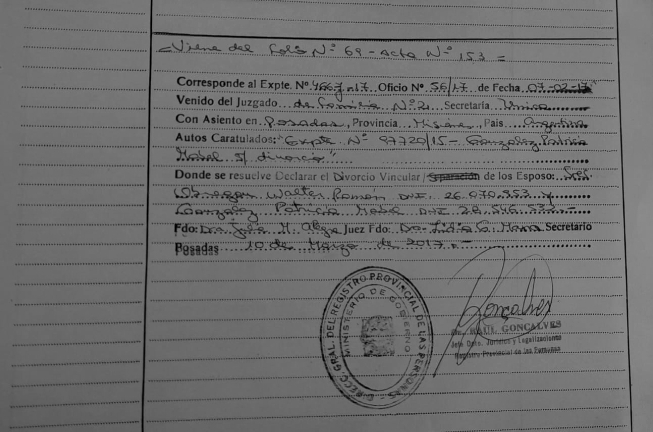 =Viene del Folio Nº 69 - Acta Nº 153 =
Corresponde al Expte. Nº 4667/17 Oficio Nº 56/17 de Fecha 07-02-17
Venido del Juzgado de Familia Nº 2 Secretaría Unica
Con Asiento en Posadas, Provincia Misiones, País Argentina
Autos Caratulados: "Expte Nº 97720/15 - Gonzalez Patricia
Mabel s/ divorcio"
Donde se resuelve Declarar el Divorcio Vincular/Separación de los Esposo:
Obregon Walter Ramón DNI. 26.070.953 y
Gonzalez Patricia Mabel DNI
Fdo: Dra. M. Juez Fdo: Dra. Lidia Secretario
Posadas 10 de Marzo de 2017.-
Posadas
DIRECC. GRAL. DEL REGISTRO PROVINCIAL DE LAS PERSONAS
MINISTERIO DE GOBIERNO
Goncalves
RAUL GONCALVES
Jefe Dpto. Jurídico y Legalizaciones
Registro Provincial de las Personas